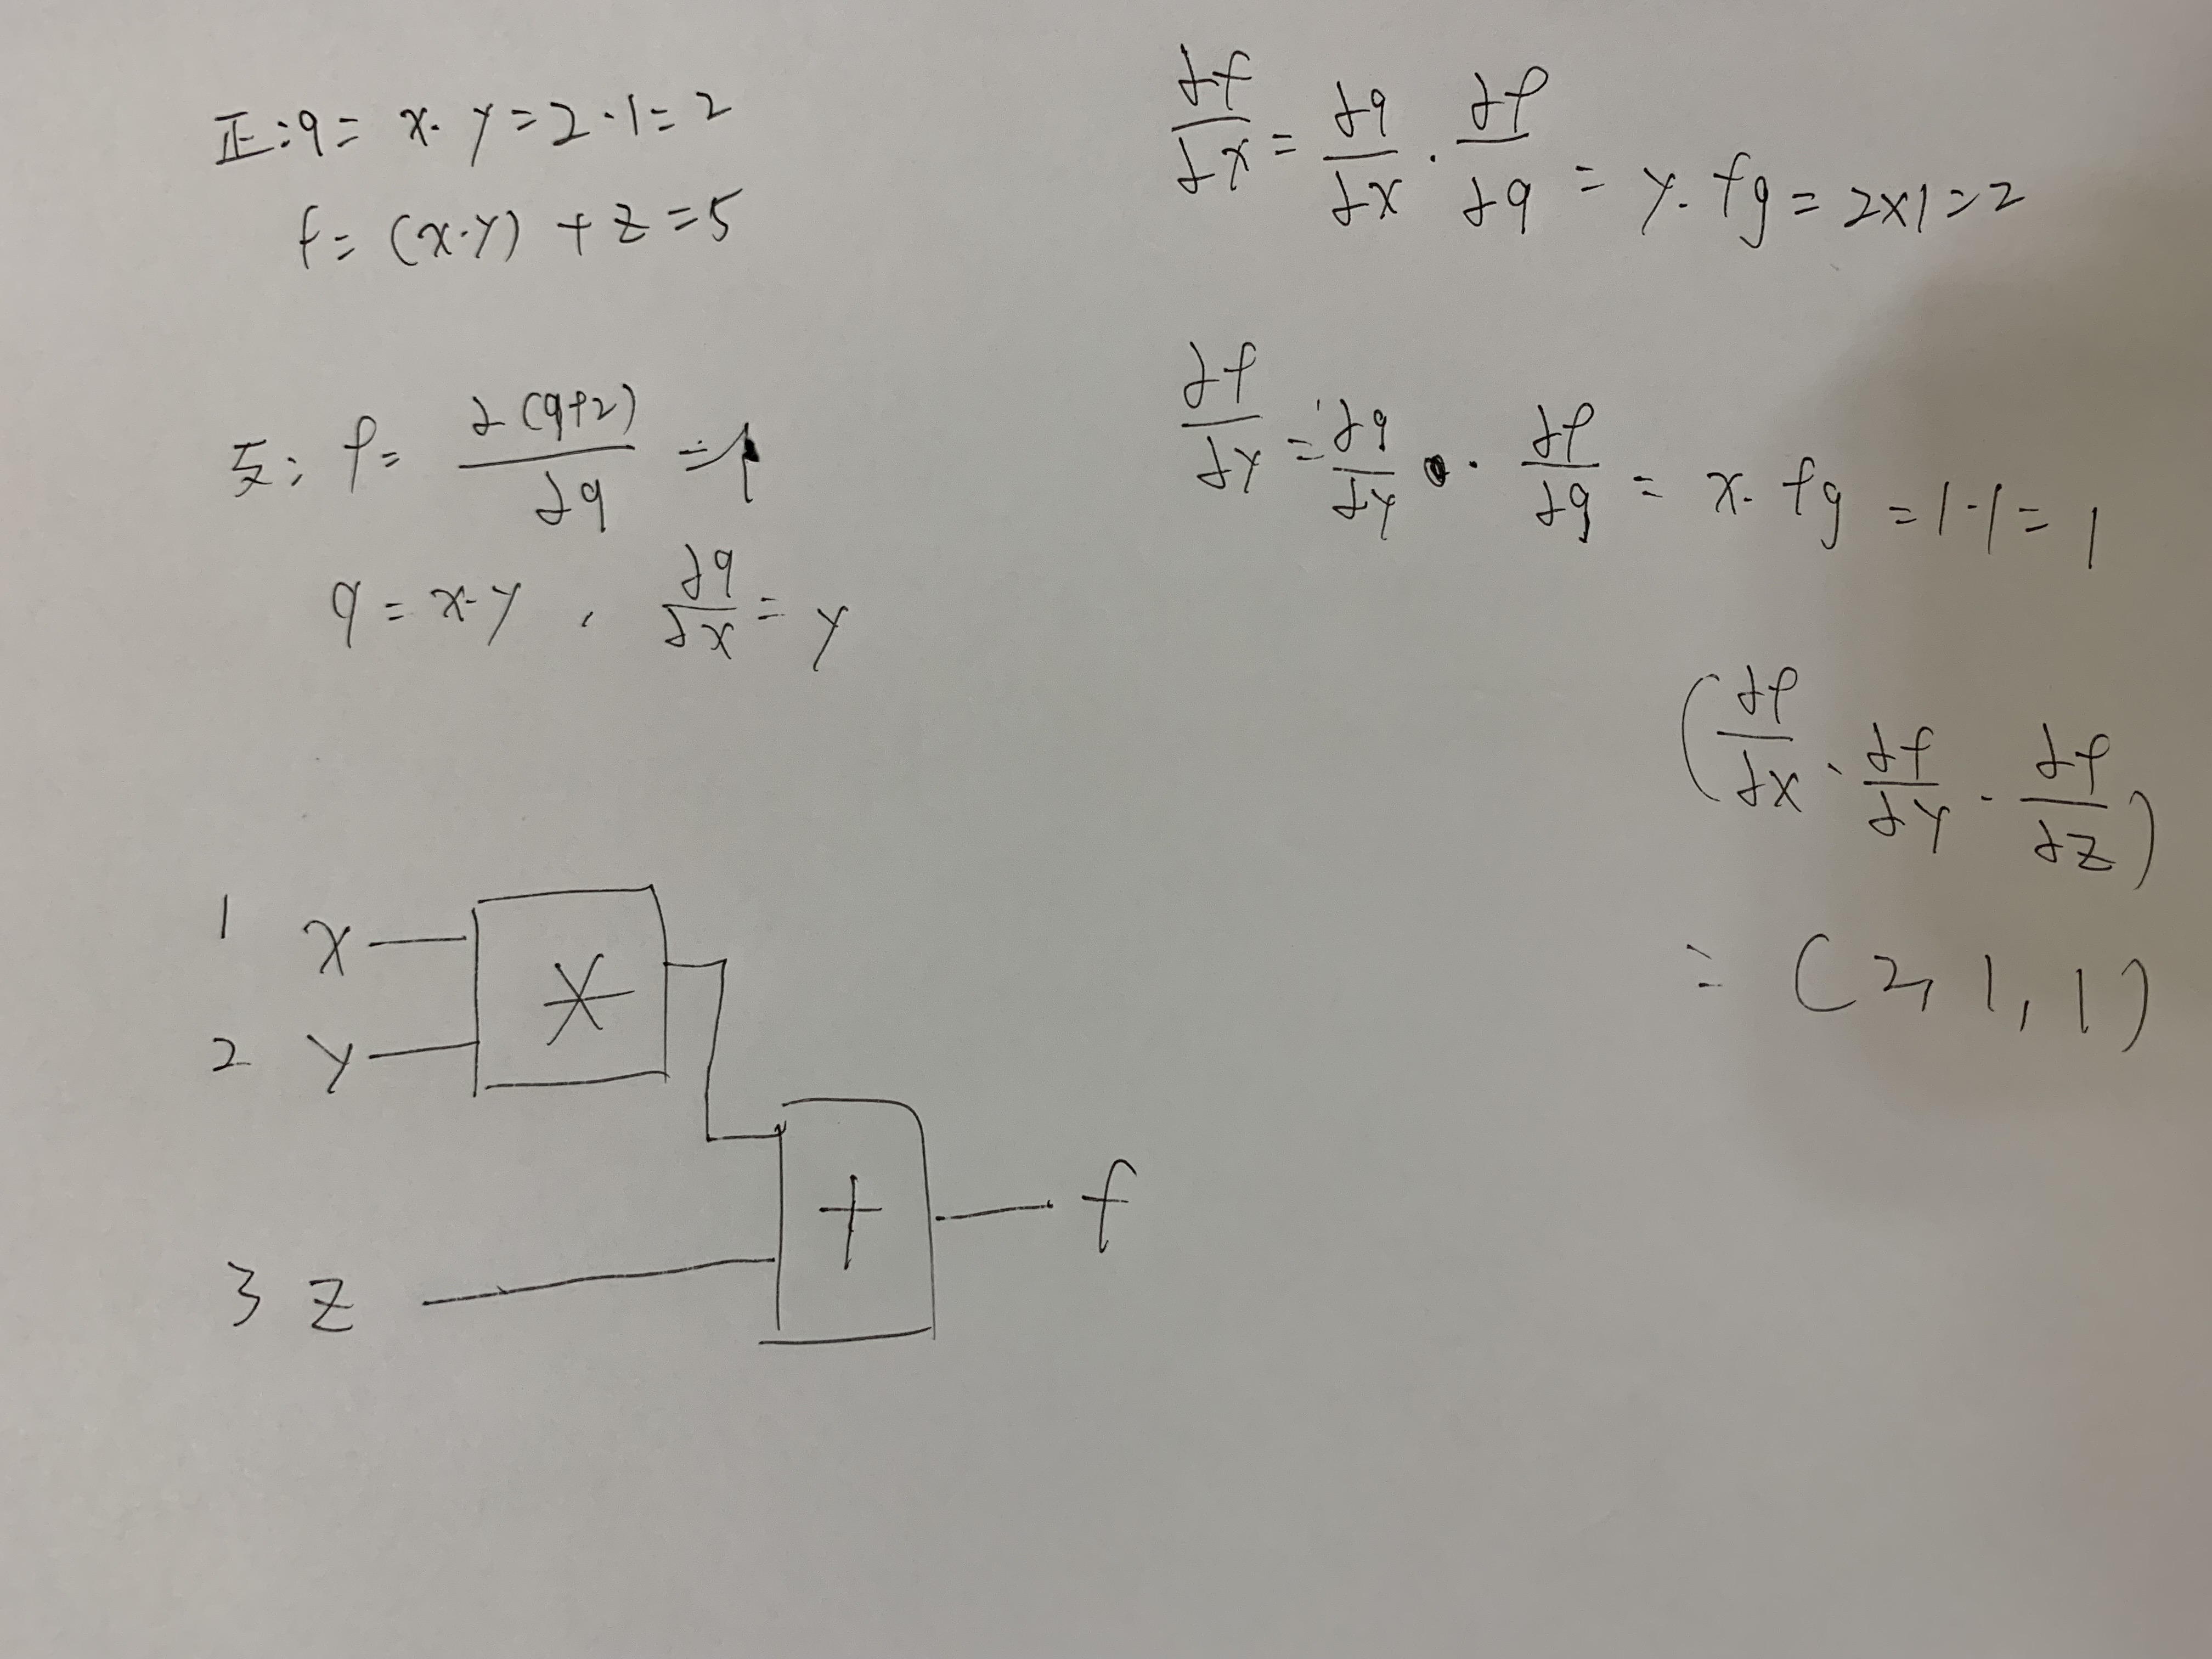 II: q = x·y = 2·1 = 2
f = (x·y) + z = 5
I: f = ∂(q+z)/∂q = 1
q = x·y, ∂q/∂x = y
1 x
2 y
*
3 z
+
f
∂f/∂x = ∂q/∂x · ∂f/∂q = y·fq = 2×1 = 2
∂f/∂y = ∂q/∂y · ∂f/∂q = x·fq = 1·1 = 1
(∂f/∂x, ∂f/∂y, ∂f/∂z)
= (2, 1, 1)